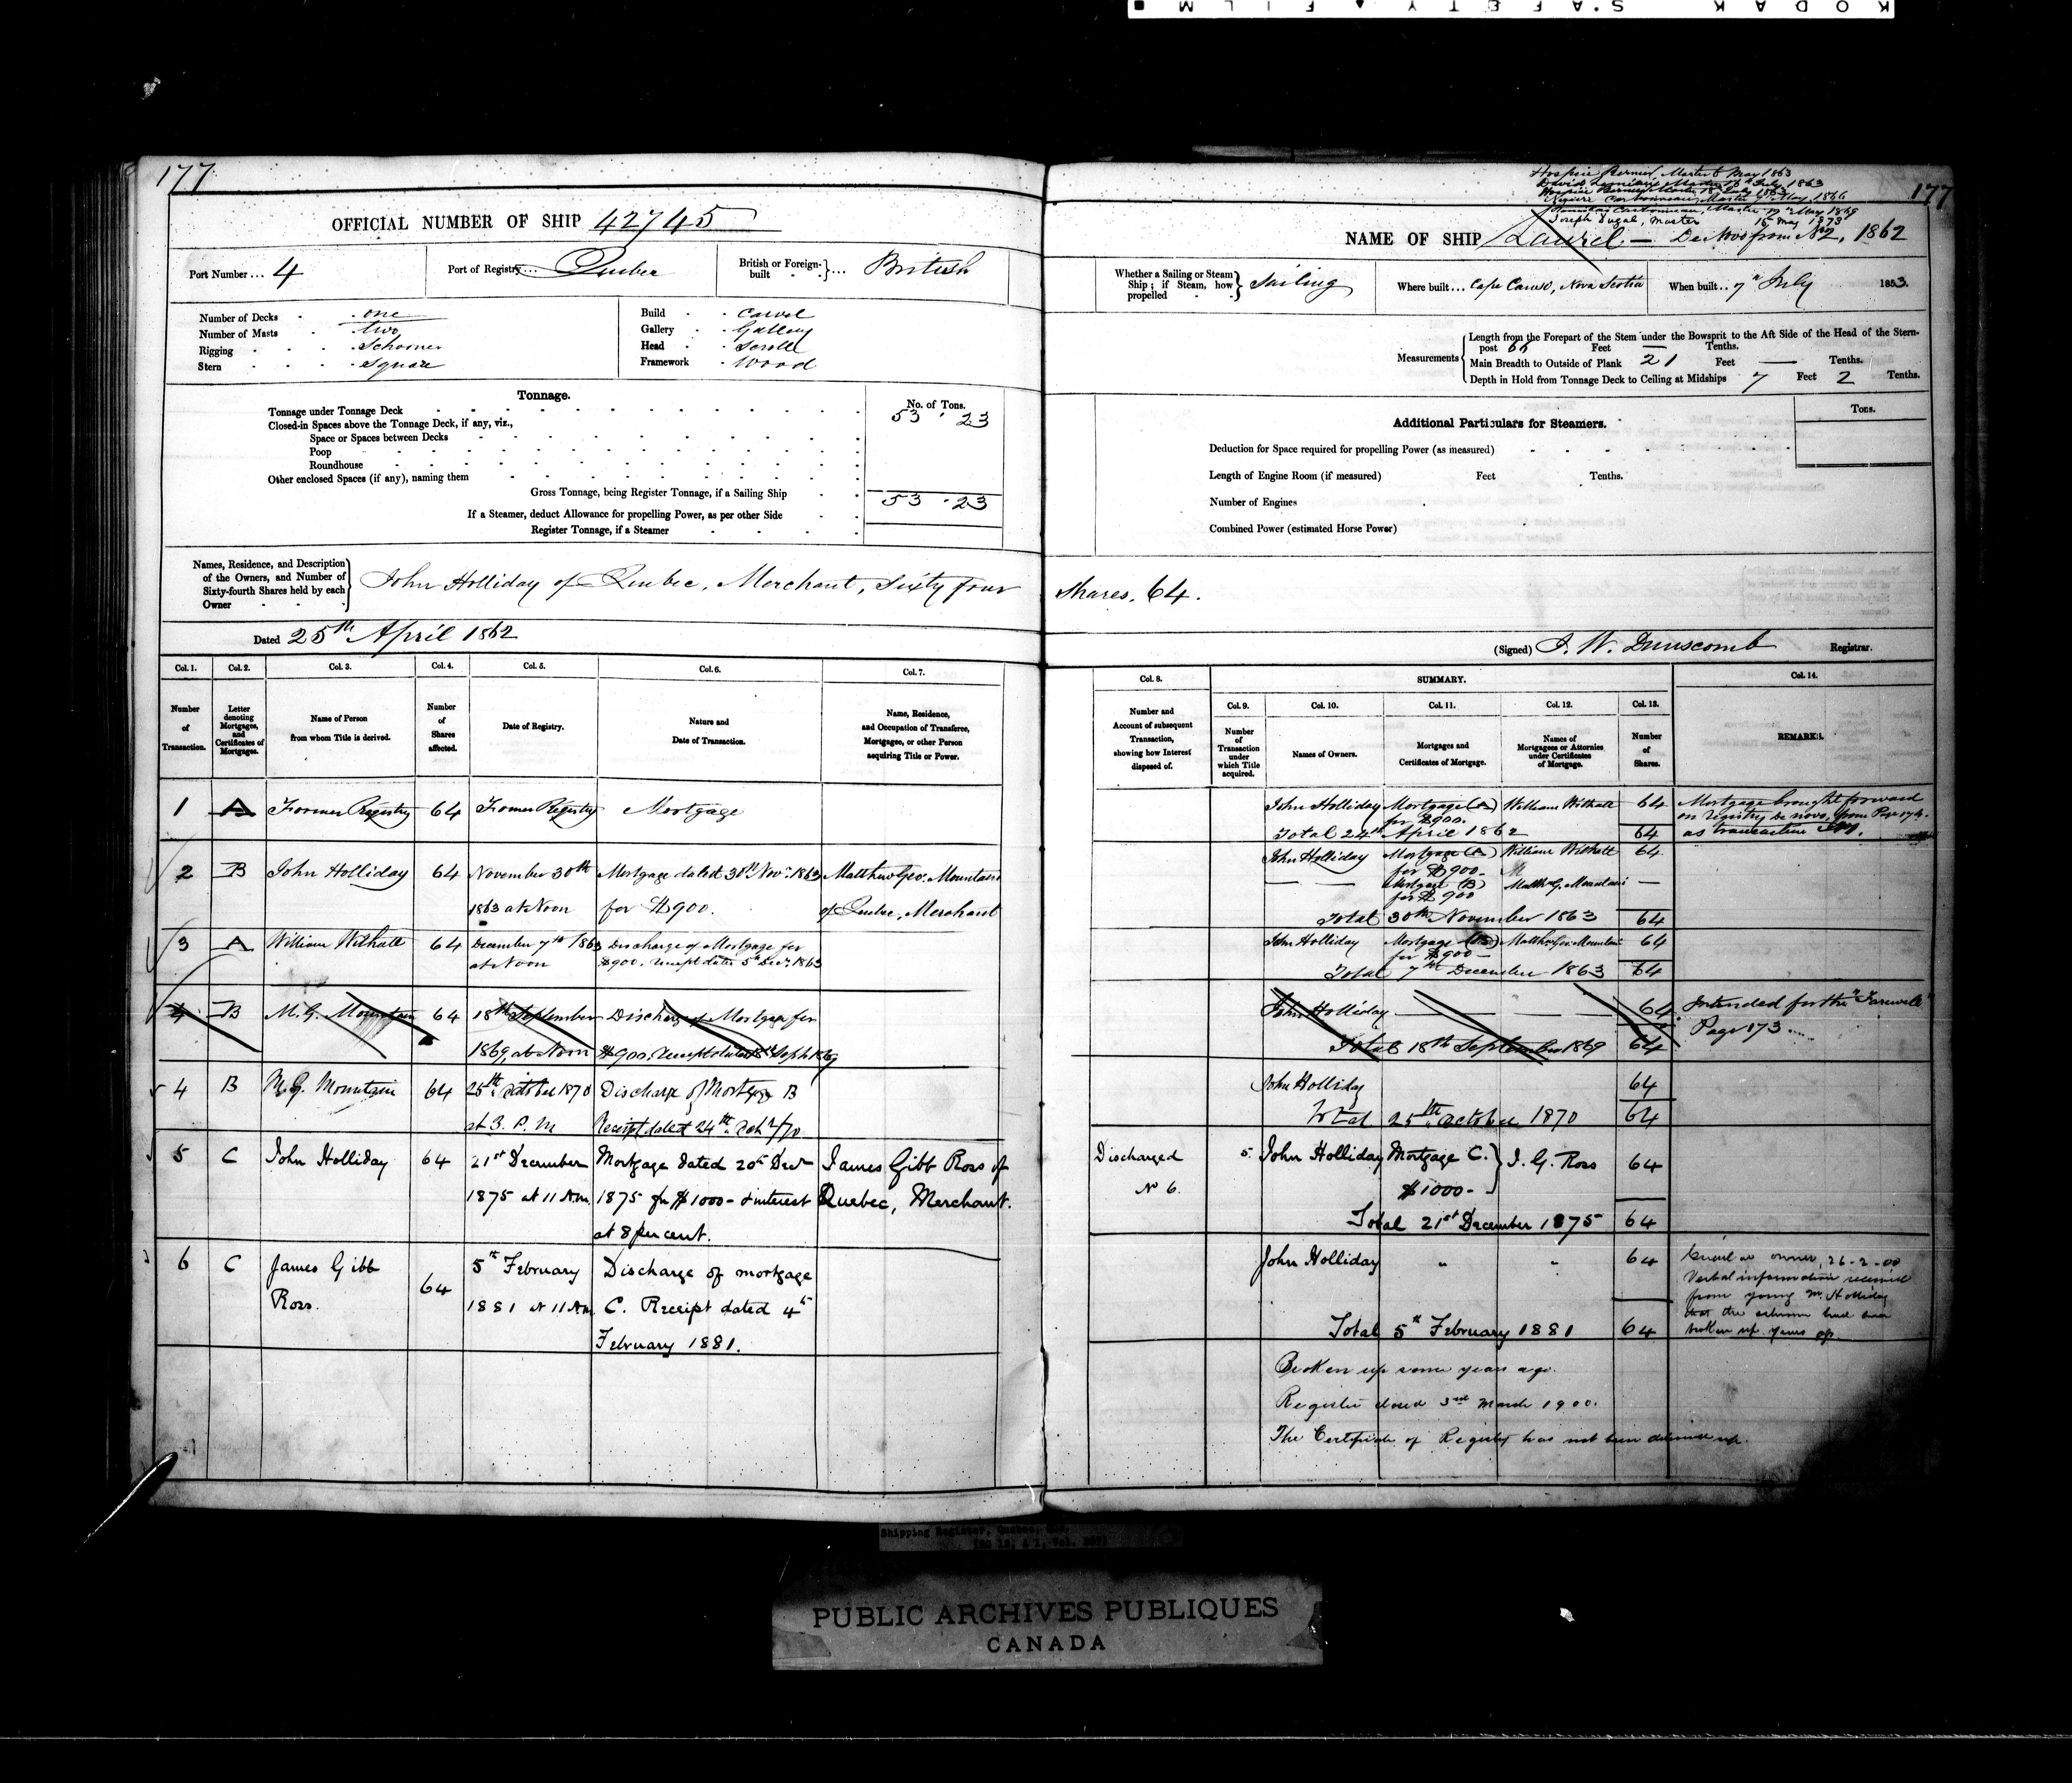 KODAK SAFETY FILM
177
OFFICIAL NUMBER OF SHIP 42745
Port Number ... 4
Port of Registry ... Quebec
British or Foreign-built ... British
Number of Decks one
Number of Masts two
Rigging Schooner
Stern Square
Build Carvel
Gallery Gallery
Head Scroll
Framework Wood
Tonnage.
No. of Tons.
Tonnage under Tonnage Deck 53 . 23
Closed-in Spaces above the Tonnage Deck, if any, viz.,
Space or Spaces between Decks
Poop
Roundhouse
Other enclosed Spaces (if any), naming them
Gross Tonnage, being Register Tonnage, if a Sailing Ship 53 . 23
If a Steamer, deduct Allowance for propelling Power, as per other Side
Register Tonnage, if a Steamer
Names, Residence, and Description of the Owners, and Number of Sixty-fourth Shares held by each Owner
John Holliday of Quebec, Merchant, Sixty four
Dated 25th April 1862
Col. 1. Col. 2. Col. 3. Col. 4. Col. 5. Col. 6. Col. 7.
Number of Transaction.
Letter denoting Mortgages, and Certificates of Mortgages.
Name of Person from whom Title is derived.
Number of Shares affected.
Date of Registry.
Nature and Date of Transaction.
Name, Residence, and Occupation of Transferee, Mortgagee, or other Person acquiring Title or Power.
1 A Former Registry 64 Former Registry Mortgage
2 B John Holliday 64 November 30th Mortgage dated 30th Novr. 1863 Matthew Geo. Mountain
1863 at Noon for $900. of Quebec, Merchant
3 A William Withall 64 December 7th 1863 Discharge of Mortgage for
at Noon $900. receipt dated 5th Decr. 1863
4 B M. G. Mountain 64 18th September Discharge of Mortgage for
1869, at Noon $900. receipt dated 18th Septr 1869
4 B M. G. Mountain 64 25th October 1870 Discharge of Mortgage B
at 3. P. M Receipt dated 24th Octr/70
5 C John Holliday 64 21st December Mortgage dated 20th Decr James Gibb Ross of
1875 at 11 A.m. 1875 for $1000 - & interest Quebec, Merchant.
at 8 per cent.
6 C James Gibb Ross. 64 5th February Discharge of mortgage
1881 at 11 A.m. C. Receipt dated 4th
February 1881.
Hospice Bernier, Master 6 May 1863
David Master July 1863
Hospice Bernier Master July 1863
Carbonneau, Master 9th May 1866
Carbonneau, Master May 1869
Joseph Dugal, Master 15 May 1873
177
NAME OF SHIP Laurel — De Novo from No 2, 1862
Whether a Sailing or Steam Ship; if Steam, how propelled Sailing
Where built ... Cape Canso, Nova Scotia
When built .. 7th July 1853.
Measurements
Length from the Forepart of the Stem under the Bowsprit to the Aft Side of the Head of the Stern-
post 66 Feet — Tenths.
Main Breadth to Outside of Plank 21 Feet — Tenths.
Depth in Hold from Tonnage Deck to Ceiling at Midships 7 Feet 2 Tenths.
Tons.
Additional Particulars for Steamers.
Deduction for Space required for propelling Power (as measured)
Length of Engine Room (if measured) Feet Tenths.
Number of Engines
Combined Power (estimated Horse Power)
Shares, 64.
(Signed) J. W. Dunscomb Registrar.
Col. 8. SUMMARY. Col. 14.
Number and Account of subsequent Transaction, showing how Interest disposed of.
Col. 9. Col. 10. Col. 11. Col. 12. Col. 13.
Number of Transaction under which Title acquired.
Names of Owners.
Mortgages and Certificates of Mortgage.
Names of Mortgagees or Attornies under Certificates of Mortgage.
Number of Shares.
REMARKS.
John Holliday Mortgage (A) William Withall 64 Mortgage brought forward
for $900. on registry de novo, from Page 174.
Total 24th April 1862 64 as transaction
John Holliday Mortgage (A) William Withall 64
for $900 -
— Mortgage (B) Matthw G. Mountain —
for $900
Total 30th November 1863 64
John Holliday Mortgage (B) Matthw Geo. Mountain 64
for $900 -
Total 7th December 1863 64
John Holliday — — 64 Intended for the "Farewell"
Page 173
Total 18th September 1869 64
John Holliday 64
Total 25th October 1870 64
Discharged 5. John Holliday Mortgage C. J. G. Ross 64
No 6. $1000 -
Total 21st December 1875 64
John Holliday " " 64 owner, 26-2-00
Verbal information received
from young Mr. Holliday
that the schooner had been
broken up years ago.
Total 5th February 1881 64
Broken up some years ago.
Register closed 3rd March 1900.
The Certificate of Registry has not been delivered up.
Shipping Register, Quebec, Que.
PUBLIC ARCHIVES PUBLIQUES
CANADA